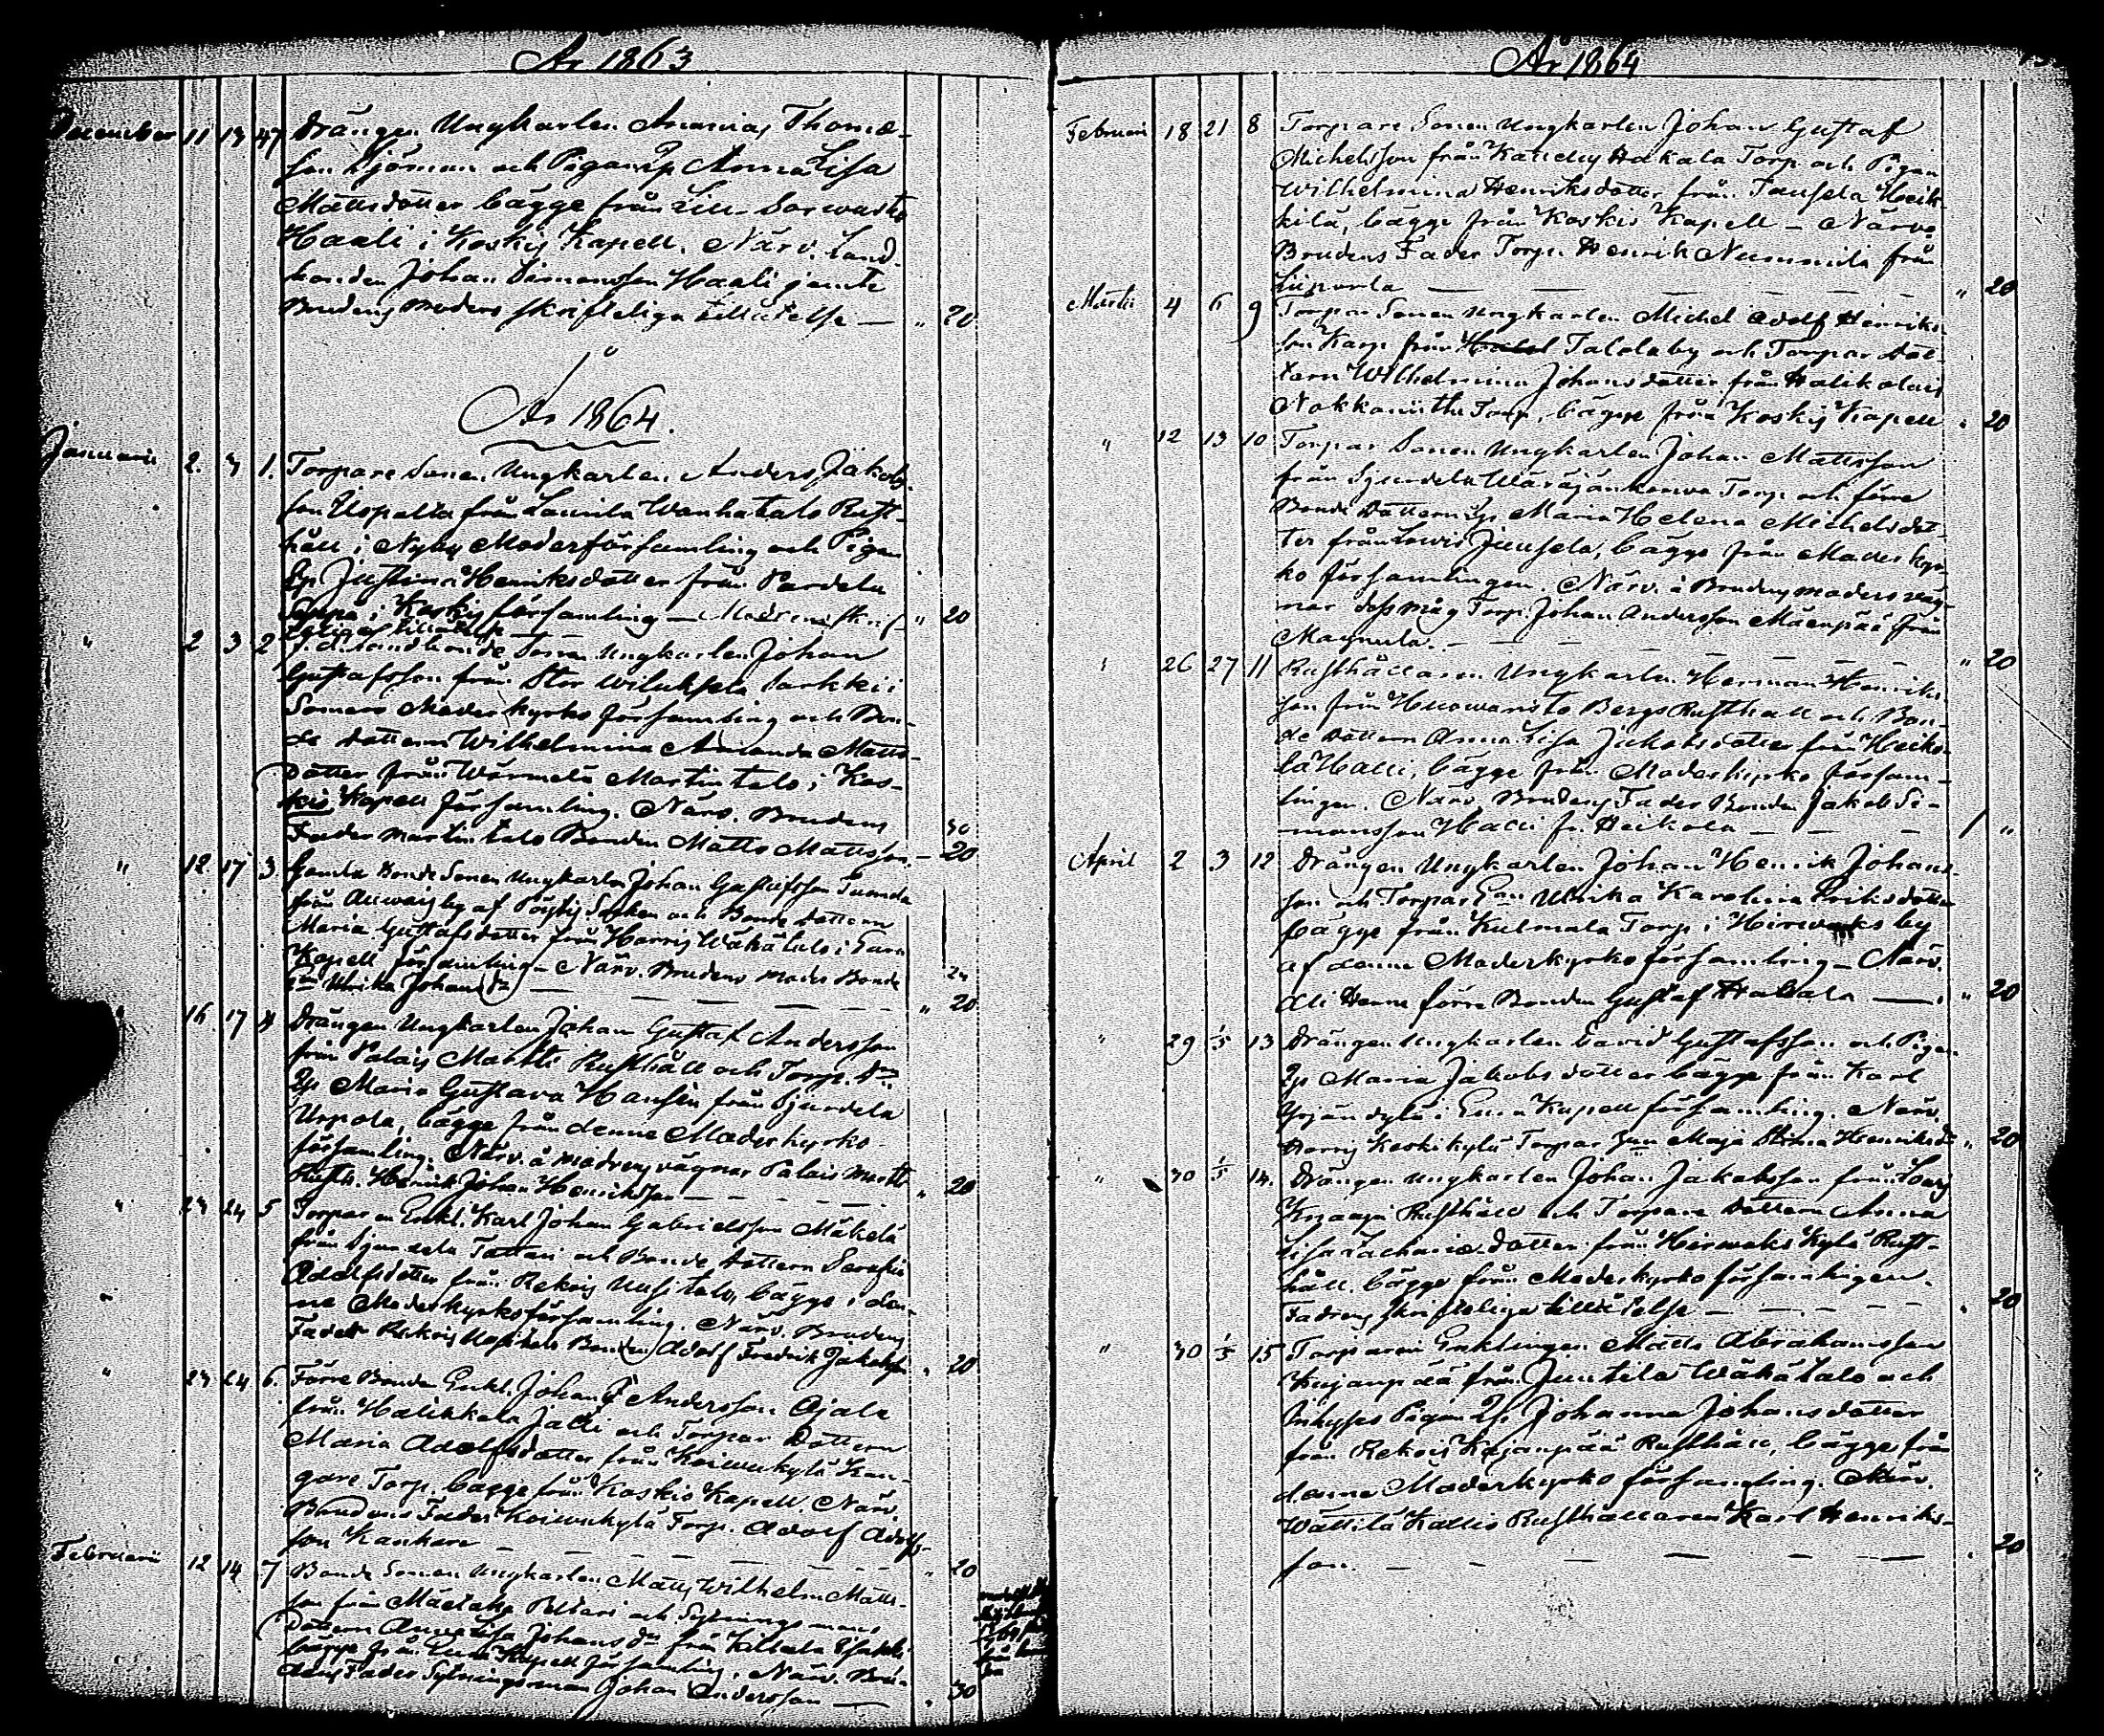 År 1863
December 11 13 47 Drängen Ungkarlen Ananias Thomæ-
son Sjöman och Pigan Anna Lisa
Mattsdotter bägge från Lill-Sorwasto
Haali i Koskis Kapell. Närv. Land-
bonden Johan Simonsson Haali jemte
Brudens moders skrifteliga tillåtelse — " 20
År 1864.
Januarii 2. 3 1. Torpare Sonen Ungkarlen Anders Jakobs-
son Uspalta från Laurila Wanhatalo Rust-
håll i Nyby Moderförsamling och Pigan
Justina Henriksdotter från Pardela
i Koskis församling — Modrens skrif- " 20
teliga tillåtelse
" 2 3 2 f. d. Landbonde Sonen Ungkarlen Johan
Gustafsson från Stor Wiluksela Sarkki i
Somero Moderkyrko församling och Bon-
de dottern Wilhelmina Amanda Matts-
dotter från Wärmelä Martintalo i Kos-
kis Kapell församling. Närv. Brudens
Fader Martintalo Bonden Matts Mattsson — 20
" 12. 17 3 Gamla Bonde Sonen Ungkarlen Johan Gustafsson
från by af Pöytis Socken och Bonde dottern
Maria Gustafsdotter från Harris Wähätalo i
Kapell församling — Närv. Brudens moder Bonde
Ulrika Johansdr — " 20
" 16. 17 4 Drängen Ungkarlen Johan Gustaf Andersson
från Palais Martti Rusthåll och Torp. Dr
Maria Gustava Hansén från Sjundela
Uspola, bägge från denne Moderkyrko-
församling. Närv. å modrens vägnar Palais Martti
Rusth. Henrik Johan Henriksson — " 20
" 23 24 5 Torparen Enkl. Karl Johan Gabrielsson Mäkelä
från Sjundela Tattari och Bonde dottern Serafia
Adolfsdotter från Rekois Uusitalo, bägge i den-
ne Moderkyrkoförsamling. Närv. Brudens
Fader Rekois Uusitalo Bonden Adolf Fredrik Jakobsson " 20
" 23 24 6. Förre Bonden Enkl. Johan Andersson Ojala
från Halikkola Jalli och Torpar Dottern
Maria Adolfsdotter från Koiwukylä Kan-
gare Torp. bägge från Koskis Kapell. Närv.
Brudens Fader Koiwukylä Torp. Adolf Adolfs-
son Kankare — " 20
Februarii 12 14 7 Bonde Sonen Ungkarlen Matts Wilhelm Matts-
son från Mäetaka Peltari och Sytningsmans
Dottern Anna Lisa Johansdr från
bägge från Kapell församling. Närv. Bru-
dens Fader Sytningsman Johan Andersson — " 30
År 1864
Februari 18 21 8 Torpare Sonen Ungkarlen Johan Gustaf
Michelsson från Hakala Torp och Pigan
Wilhelmina Henriksdotter från Tausela Heik-
kilä, bägge från Koskis Kapell — Närv.
Brudens Fader Torp. Henrik Nummila från
Liiparla — " 20
Martii 4 6 9 Torpar Sonen Ungkarlen Michel Adolf Henriks-
son Karp från Talolaby och Torpar dot-
tern Wilhelmina Johansdotter från Halikolais
Torp, bägge från Koskis Kapell " 20
" 12 13 10 Torpar Sonen Ungkarlen Johan Mattsson
från Sjundela Wäräjänkorwa Torp. och förre
Bonde Dottern Maria Helena Michelsdot-
ter från Juusela, bägge från Moderkyr-
ko församlingen. Närv. å Brudens moders väg-
nar dess måg Torp. Johan Andersson Mäenpää från
Maynula. — " 20
" 26 27 11 Rusthållaren Ungkarlen Herman Henriks-
son från Huowaristo Bergs Rusthåll och Bon-
de Dottern Anna Lisa Jakobsdotter från Heiko-
la Halli, bägge från Moderkyrko försam-
lingen. Närv. Brudens Fader Bonden Jakob Si-
monsson Halli fr. Heikola — 1 "
April 2 3 12 Drängen Ungkarlen Johan Henrik Johans-
son och Torpar Enn Ulrika Karolina Eriksdotter
bägge från Kulmala Torp i Hirwoks by
af denne Moderkyrkoförsamling — Närv.
förre Bonden Gustaf Hakala — " 20
" 29 1/5 13 Drängen Ungkarlen David Gustafsson och Pigan
Maria Jakobsdotter bägge från Karl
Yrjänkylä i Kapell församling. Närv.
Harris Koskikylä Torpar Maja Stina Henriksdr " 20
" 30 1/5 14. Drängen Ungkarlen Johan Jakobsson från
Rusthåll och Torpare Dottern Anna
Lisa Zachariædotter från Hirwoks Kylä Rust-
håll. bägge från Moderkyrko församlingen.
Fadrens skrifteliga tillåtelse — " 20
" 30 1/5 15 Torparen Enklingen Matts Abrahamsson
Kujanpää från Juntila Wähätalo och
Inhyses Pigan Johanna Johansdotter
från Rekois Kujanpää Rusthåll, bägge från
denne Moderkyrko församling. Närv.
Wättilä Kallio Rusthållaren Karl Henriks-
son. — " 20